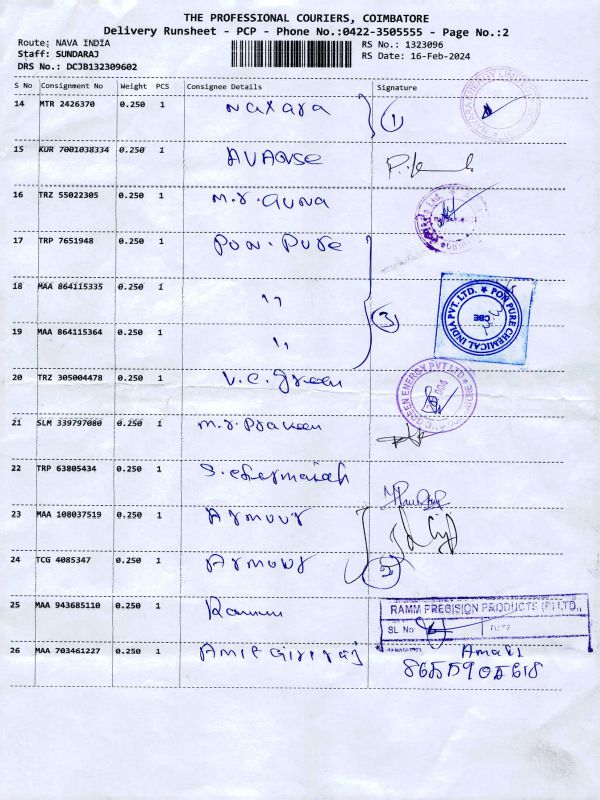 THE PROFESSIONAL COURIERS, COIMBATORE
Delivery Runsheet - PCP - Phone No.:0422-3505555 - Page No.:2
Route: NAVA INDIA
Staff: SUNDARAJ
DRS No.: DCJB132309602
RS No.: 1323096
RS Date: 16-Feb-2024
S No Consignment No Weight PCS Consignee Details Signature
14 MTR 2426370 0.250 1 1
15 KUR 7001038334 0.250 1
16 TRZ 55022305 0.250 1 M.r.Guna
17 TRP 7651948 0.250 1 Pon.Pure
18 MAA 864115335 0.250 1 ,, 3
PON PURE CHEMICAL INDIA PVT. LTD.
CBE
19 MAA 864115364 0.250 1 ,,
20 TRZ 305004478 0.250 1 V.C.green
GREEN ENERGY PVT LTD
21 SLM 339797080 0.250 1 M.r.Praveen
22 TRP 63805434 0.250 1
23 MAA 108037519 0.250 1 Armour
24 TCG 4085347 0.250 1 Armour 2
25 MAA 943685110 0.250 1 Ramm
RAMM PRECISION PRODUCTS (P) LTD.,
SL No
DATE
26 MAA 703461227 0.250 1 Amit Giriraj